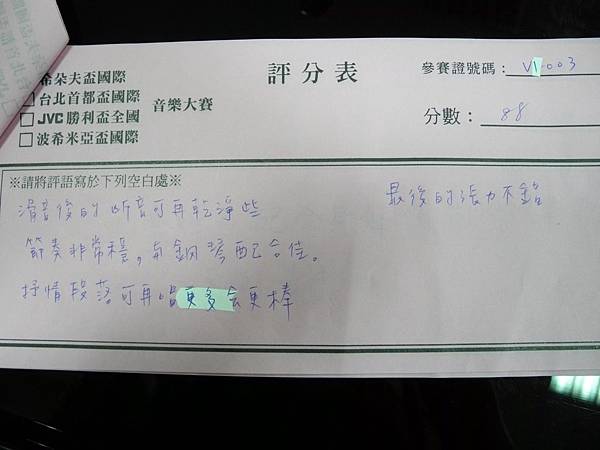 評分表
參賽證號碼：V1-003
分數：88
希朵夫盃國際
□台北首都盃國際
□JVC勝利盃全國
□波希米亞盃國際
音樂大賽
※請將評語寫於下列空白處※
滑音後的斷音可再乾淨些
節奏非常穩，與鋼琴配合佳。
抒情段落可再唱更多会更棒
最後的張力不錯